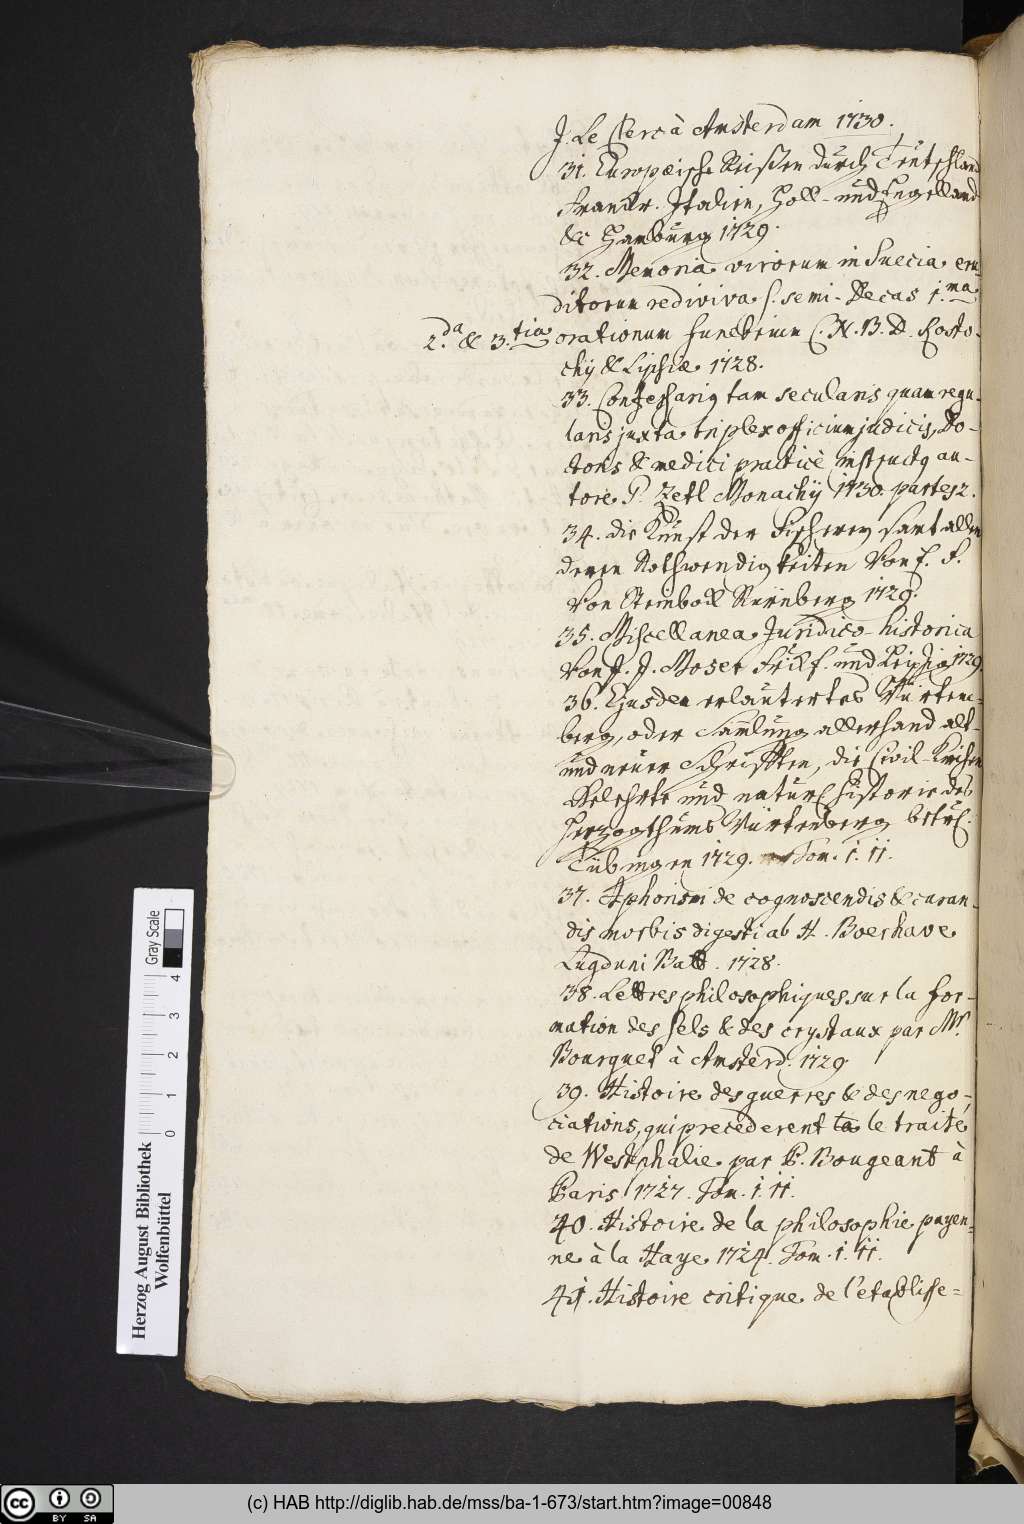 J. Le Clerc à Amsterdam 1730.
31. Europæische Reisen durch Teutschland
Franckr. Italien, Holl- und Engelland
&c Hamburg 1729.
32. Memoria virorum in Suecia eru-
ditorum rediviva s. semi-Decas 1.ma
2.da & 3.tia orationum funebrium C. N. B. D. Rosto-
chij & Lipsiæ 1728.
33. Confessarig tam secularis quam regu-
laris juxta triplex officium judicis, Do-
ctoris & medici practicè instructg au-
tore P. Zetl Monachij 1730. partes 2.
34. die Kunst der Fischerey samt allen
deren Nothwendigkeiten Von F. F.
Von Steinbock Nürnberg 1729.
35. Miscellanea Juridico-historica
Von J. J. Moser Frckf. und Leipzig 1729
36. Ejusdem erläutertes Würtem-
berg, oder Samlung allerhand alt-
und neuer Schrifften, die Civil-Kirchen
Gelehrte und naturl historie des
Herzogthums Würtenberg betrl.
Tübingen 1729. Tom. i. ii.
37. Aphorismi de cognoscendis & curan-
dis morbis digesti ab H. Boerhave
Lugduni Batt. 1728.
38. Lettres philosophiques sur la for-
mation des sels & des crystaux par Mr.
Bourguet à Amsterd. 1729
39. Histoire des guerres & des nego-
ciations, qui precederent le traité
de Westphalie par P. Bougeant à
Paris 1727. Tom. i. ii.
40. Histoire de la philosophie payen-
ne à la Haye 1724. Tom. i. ii.
41. Histoire critique de l'etablisse-
Herzog August Bibliothek
Wolfenbüttel
0 1 2 3 4
Gray Scale
cc BY SA
(c) HAB http://diglib.hab.de/mss/ba-1-673/start.htm?image=00848